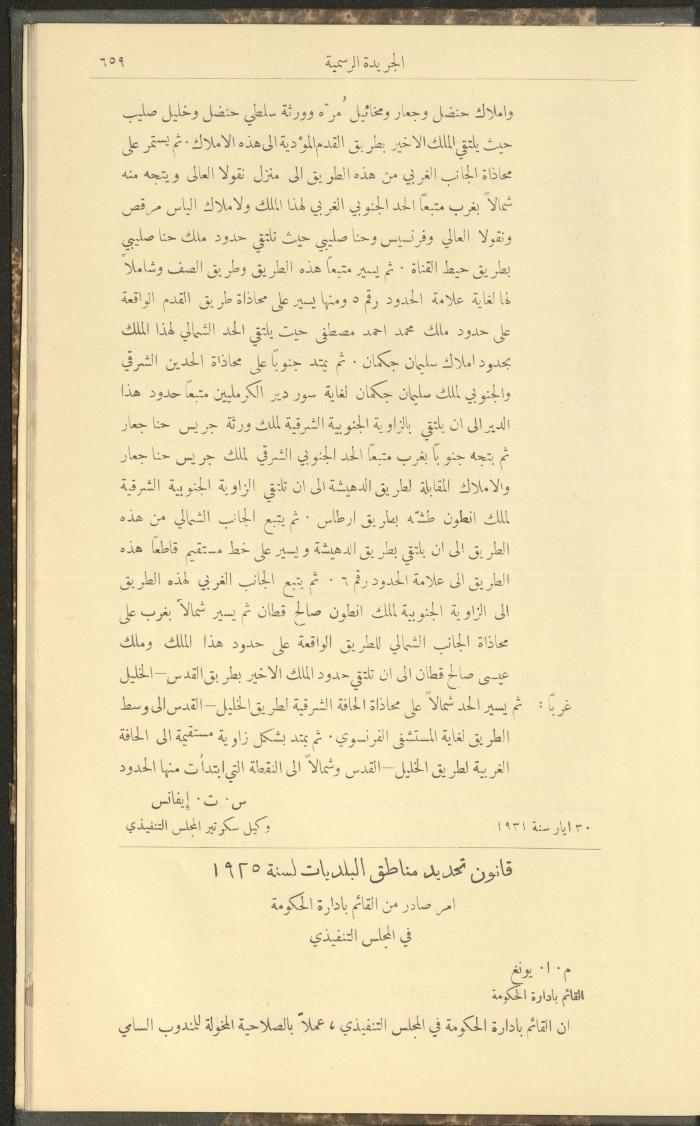 الجريدة الرسمية ٦٥٩
واملاك حنضل وجعار ومخائيل مُرّه وورثة سلطي حنضل وخليل صليب
حيث يلتقي الملك الاخير بطريق القدم المؤدية الى هذه الاملاك. ثم يستمر على
محاذاة الجانب الغربي من هذه الطريق الى منزل نقولا العالى ويتجه منه
شمالاً بغرب متبعاً الحد الجنوبي الغربي لهذا الملك ولاملاك الياس مرقص
ونقولا العالي وفرنسيس وحنا صليبي حيث تلتقي حدود ملك حنا صليبي
بطريق حيط القناة . ثم يسير متبعاً هذه الطريق وطريق الصف وشاملاً
لها لغاية علامة الحدود رقم ٥ ومنها يسير على محاذاة طريق القدم الواقعة
على حدود ملك محمد احمد مصطفى حيت يلتقي الحد الشمالي لهذا الملك
بحدود املاك سليمان جكمان . ثم يمتد جنوباً على محاذاة الحدين الشرقي
والجنوبي لملك سليمان جكمان لغاية سور دير الكرمليين متبعاً حدود هذا
الدير الى ان يلتقي بالزاوية الجنوبية الشرقية لملك ورثة جريس حنا جعار
ثم يتجه جنوباً بغرب متبعاً الحد الجنوبي الشرقي لملك جريس حنا جعار
والاملاك المقابلة لطريق الدهيشة الى ان تلتقي الزاوية الجنوبية الشرقية
لملك انطون طشّه بطريق ارطاس . ثم يتبع الجانب الشمالي من هذه
الطريق الى ان يلتقي بطريق الدهيشة ويسير على خط مستقيم قاطعاً هذه
الطريق الى علامة الحدود رقم ٦ . ثم يتبع الجانب الغربي لهذه الطريق
الى الزاوية الجنوبية لملك انطون صالح قطان ثم يسير شمالاً بغرب على
محاذاة الجانب الشمالي للطريق الواقعة على حدود هذا الملك وملك
عيسى صالح قطان الى ان تلتقي حدود الملك الاخير بطريق القدس—الخليل
غرباً : ثم يسير الحد شمالاً على محاذاة الحافة الشرقية لطريق الخليل—القدس الى وسط
الطريق لغاية المستشفى الفرنسوي. ثم يمتد بشكل زاوية مستقيمة الى الحافة
الغربية لطريق الخليل—القدس وشمالاً الى النقطة التي ابتدأت منها الحدود
س . ت . إيفانس
٣٠ ايار سنة ١٩٣١ وكيل سكرتير المجلس التنفيذي
قانون تحديد مناطق البلديات لسنة ١٩٢٥
امر صادر من القائم بادارة الحكومة
في المجلس التنفيذي
م . ا . يونغ
القائم بادارة الحكومة
ان القائم بادارة الحكومة في المجلس التنفيذي ، عملاً بالصلاحية المخولة للمندوب السامي